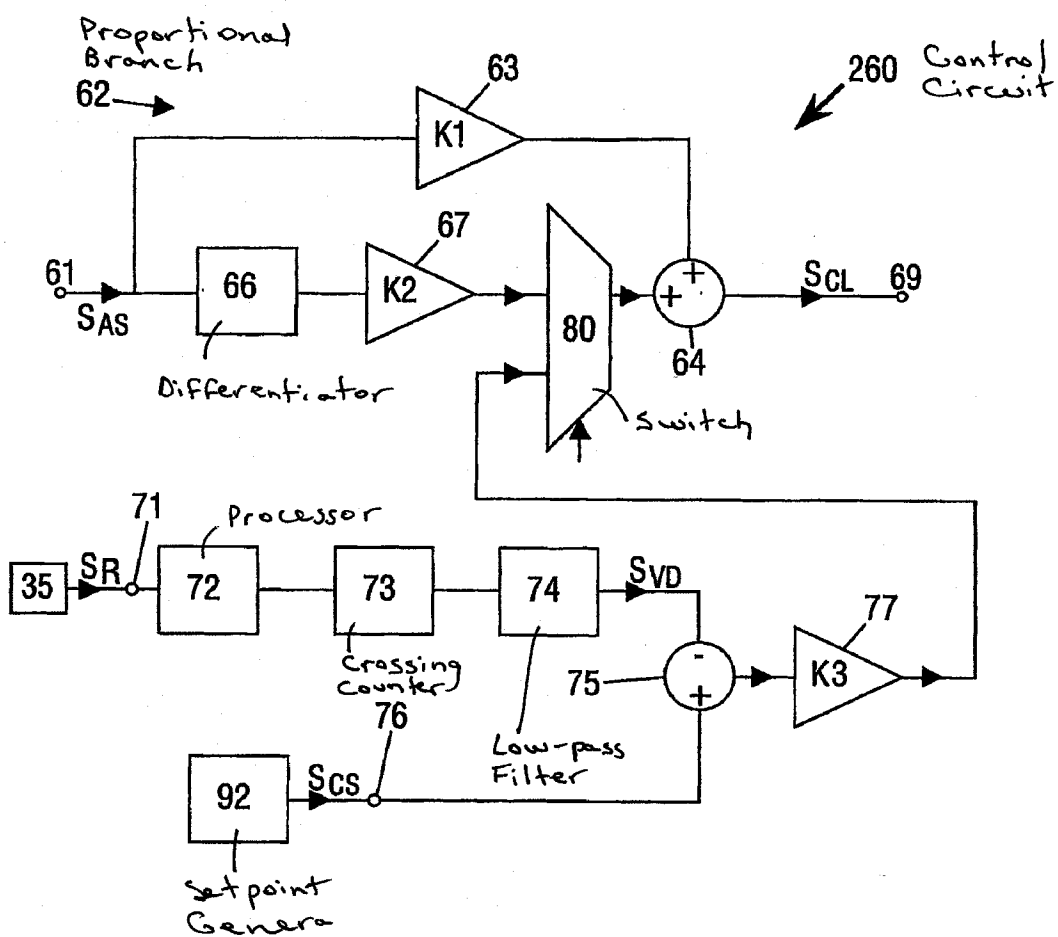 Proportional
Branch
62
63
260
Control
Circuit
K1
67
61
SAS
66
K2
80
+
+
SCL
69
64
Differenticator
Switch
71
Processor
35
SR
72
73
74
SVD
77
Crossing
Counter
75
-
+
K3
76
Low-pass
Filter
92
SCS
Setpoint
Genera